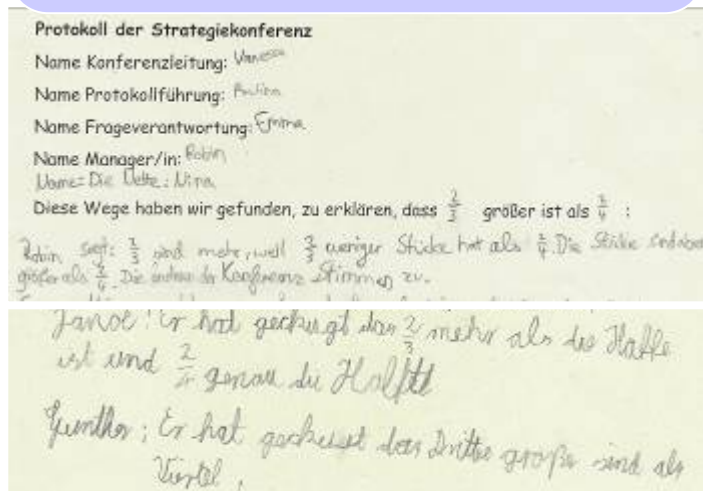 Protokoll der Strategiekonferenz
Name Konferenzleitung: Vanessa
Name Protokollführung: Paulina
Name Frageverantwortung: Emma
Name Manager/in: Robin
Name: Die Nette: Nina
Diese Wege haben wir gefunden, zu erklären, dass 2/3 größer ist als 2/4 :
Robin sagt: 2/3 sind mehr, weil 2/3 weniger Stücke hat als 2/4. Die Stücke sind aber
größer als 2/4. Die andren der Konferenz Stimmen zu.
Er hat gesagt das 2/3 mehr als die Hälfte
ist und 2/4 genau die
Gunther: Er hat das Drittel große sind als
Viertel.